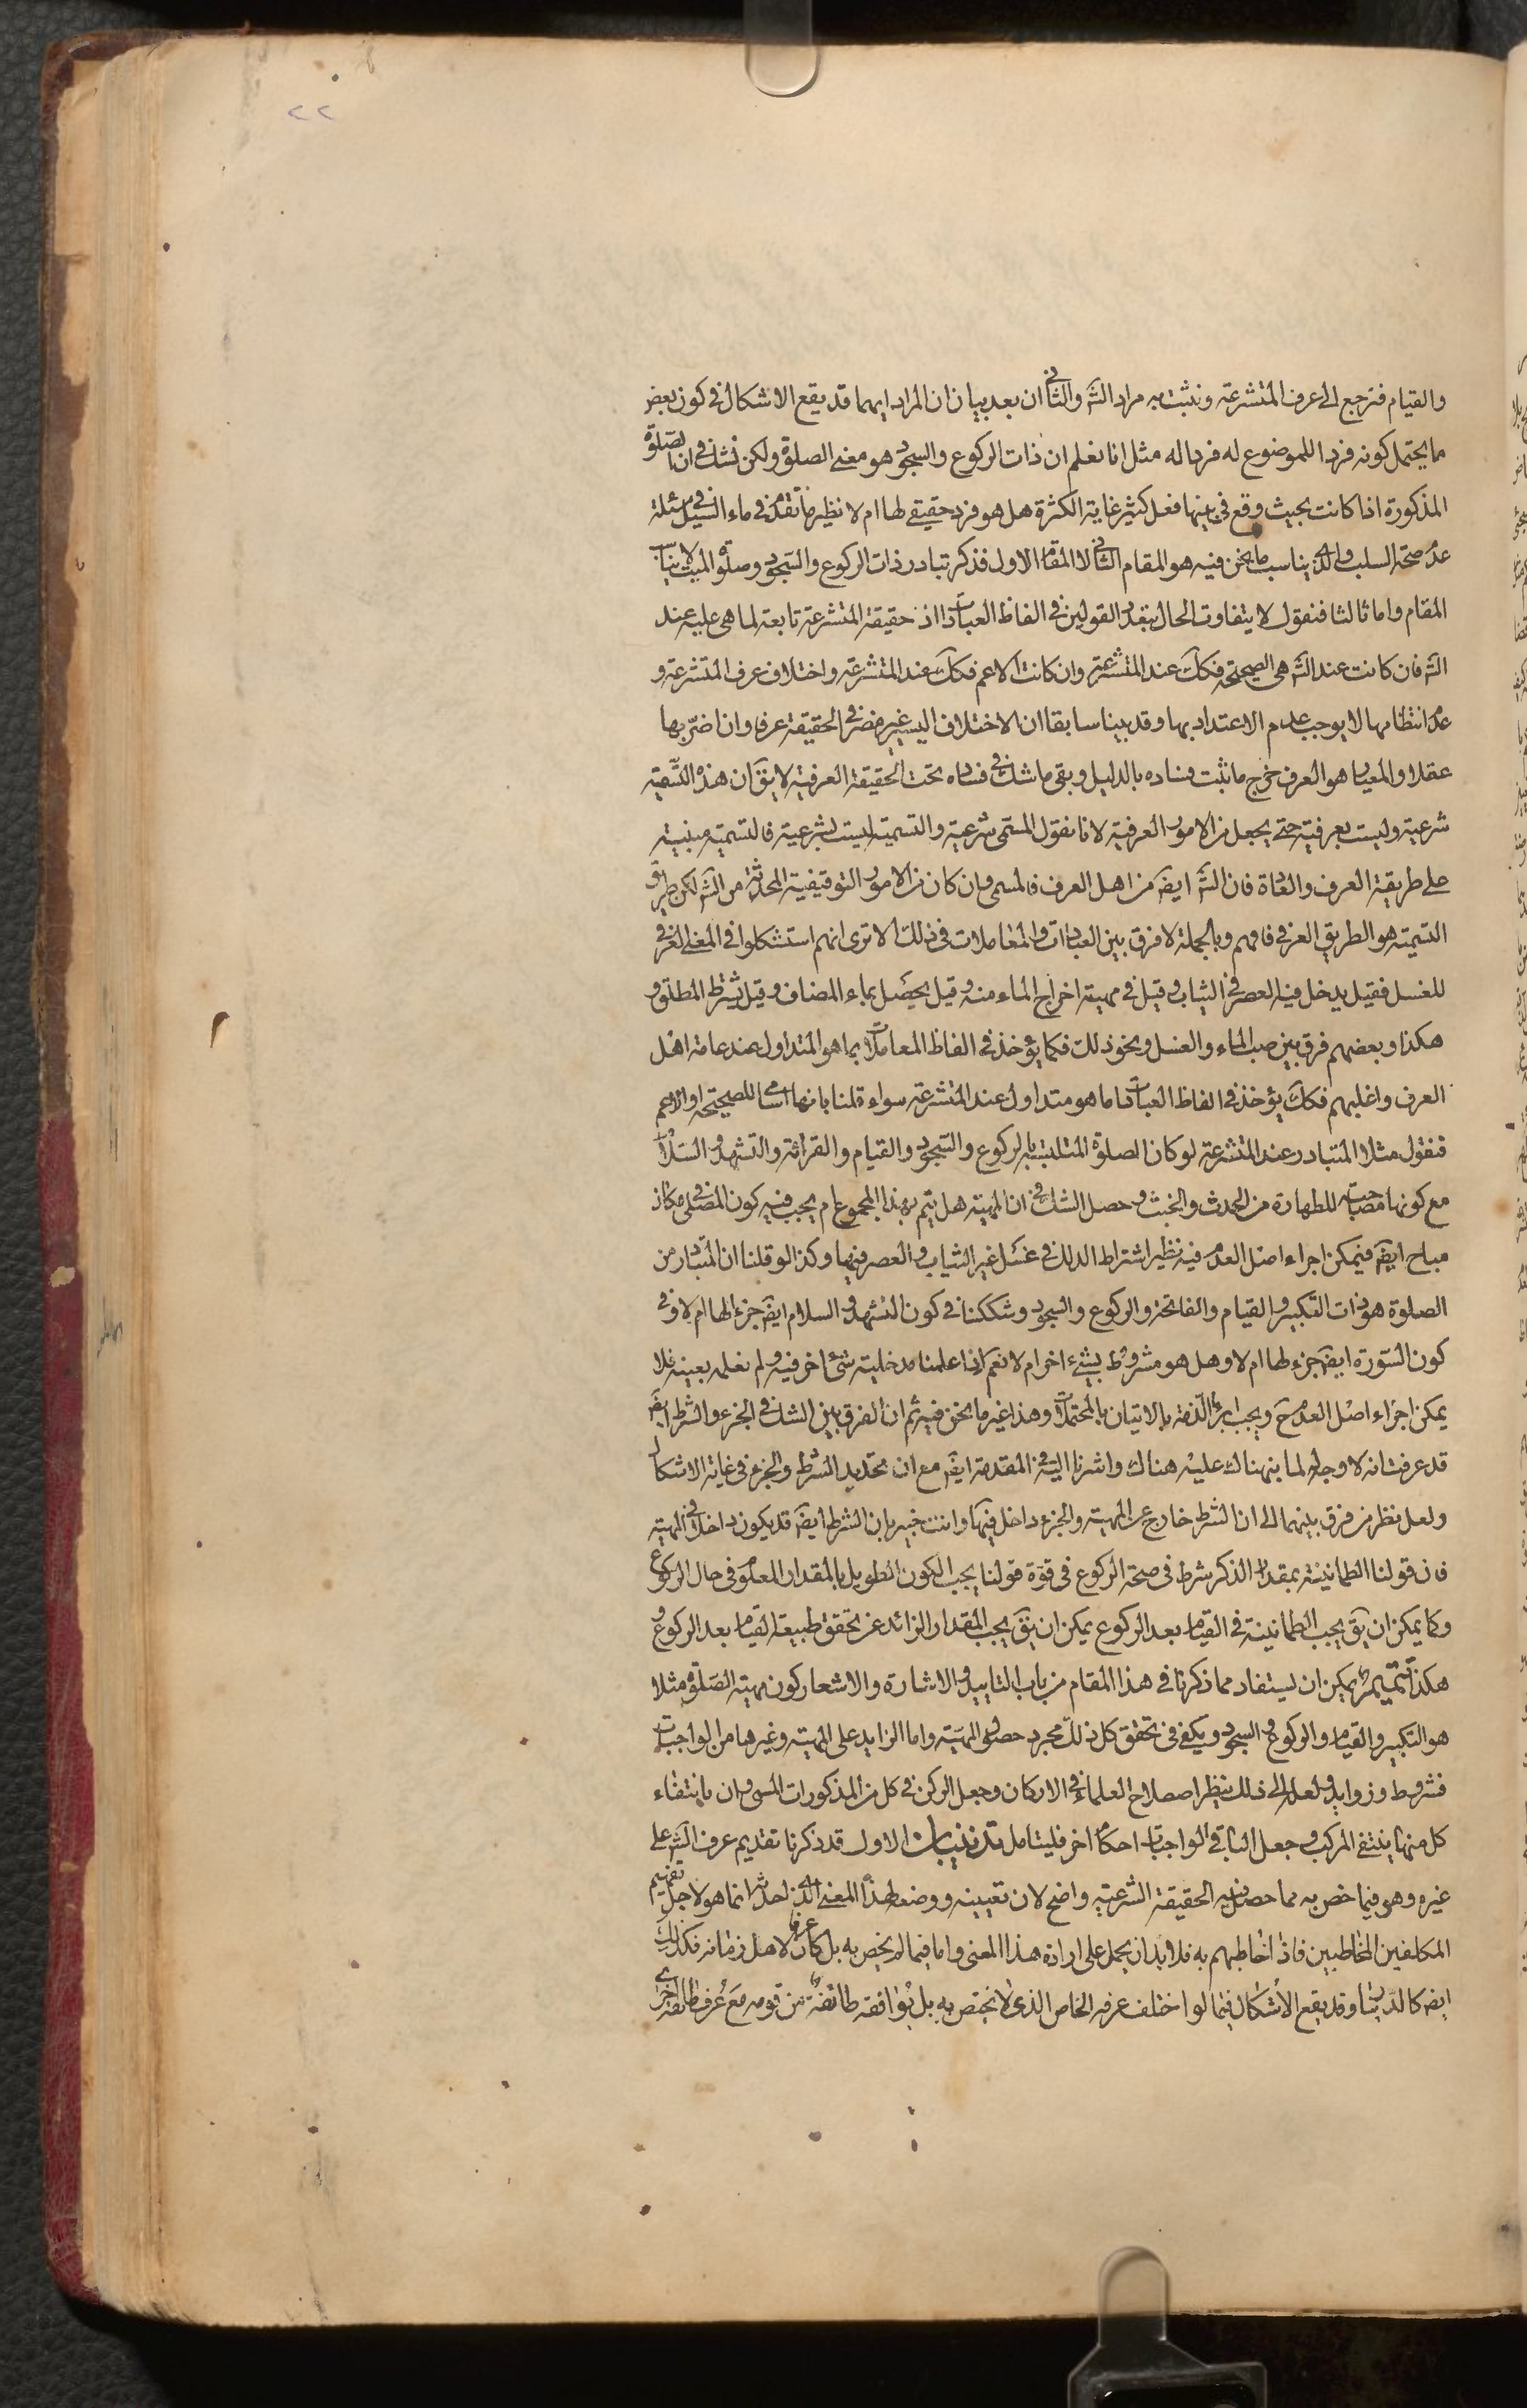 ٢٢
والقيام فنرجع الى عرف المتشرعة ونثبت به مراد الشّ والثانى ان بعد بيان ان المراد ايهما قد يقع الاشكال فى كون بعض
ما يحتمل كونه فردا للموضوع له فردا له مثل انا نعلم ان ذات الركوع والسجود هو معنى الصلوة ولكن نشك فى ان الصلوة
المذكورة اذا كانت بحيث وقع فى بينها فعل كثير غاية الكثرة هل هو فرد حقيقى لها ام لا نظير ما تقدم فى ماء السيل فى مسئلة
عدم صحة السلب والذى يناسب ما نحن فيه هو المقام الثانى لا المقام الاول فذكر تبادر ذات الركوع والسجود وصلوة الميت لا يناسب
المقام واما ثالثا فنقول لا يتفاوت الحال بتعدد القولين فى الفاظ العبادات اذ حقيقة المتشرعة تابعة لما هى عليه عند
الشّ فان كانت عند الشّ هى الصحيحة فكك عند المتشرعة وان كانت الاعم فكك عند المتشرعة واختلاف عرف المتشرعة و
عدم انتظامها لا يوجب عدم الاعتداد بها وقد بينا سابقا ان الاختلاف اليسير غير مضر فى الحقيقة عرفا وان اضرّ بها
عقلا والمعيار هو العرف خرج ما ثبت فساده بالدليل وبقى ما شك فى فساده تحت الحقيقة العرفية لا يقّ ان هذه التسمية
شرعية وليست بعرفية حتى يجعل من الامور العرفية لانا نقول المسمى شرعية والتسمية ليست بشرعية فالتسمية مبنية
على طريقة العرف والعادة فان الشّ ايضّ من اهل العرف فالمسمى وان كان من الامور التوقيفية المحدثة من الشّ لكن طريق
التسمية هو الطريق العرفى فافهم وبالجملة لا فرق بين العبادات والمعاملات فى ذلك الا ترى انهم استشكلوا فى المعنى العرفى
للغسل فقيل يدخل فيه العصر فى الثياب وقيل فى مهية اخراج الماء منه وقيل يحصل بماء المضاف وقيل يشترط المطلق و
هكذا وبعضهم فرق بين صب الماء والغسل ونحو ذلك فكما يؤخذ فى الفاظ المعاملات بما هو المتداول عند عامة اهل
العرف واغلبهم فكك يؤخذ فى الفاظ العبادات ما هو متداول عند المتشرعة سواء قلنا بانها اسامى للصحيحة او الاعم
فنقول مثلا المتبادر عند المتشرعة لو كان الصلوة المتلبسة بالركوع والسجود والقيام والقرائة والتشهد والسلام
مع كونها مصاحبة للطهارة من الحدث والخبث وحصل الشك فى ان المهية هل يتم بهذا المجموع ام يجب فيه كون المصلى فى مكان
مباح ايضّ فيمكن اجراء اصل العدم فيه نظير اشتراط الدلك فى غسل غير الثياب والعصر فيها وكذا لو قلنا ان المتبادر من
الصلوة هو ذات التكبير والقيام والفاتحة والركوع والسجود وشككنا فى كون التشهد والسلام ايضّ جزء لها ام لا وفى
كون السورة ايضّ جزء لها ام لا وهل هو مشروط بشىء اخر ام لا نعم اذا علمنا مدخلية شئ اخر فيه ولم نعلمه بعينه فلا
يمكن اجراء اصل العدم حّ ويجب ابراء الذمة بالاتيان بالمحتملات وهذا غير ما نحن فيه ثم ان الفرق بين الشك فى الجزء والشرط ايضّ
قد عرفت انه لا وجه له لما نبهناك عليه هناك واشرنا اليه فى المقدمة ايضّ مع ان تحديد الشرط والجزء فى غاية الاشكال
ولعل نظر من فرق بينهما الى ان الشرط خارج عن المهية والجزء داخل فيها وانت خبير بان الشرط ايضّ قد يكون داخلا فى المهية
فان قولنا الطمانينة بمقدار الذكر شرط فى صحة الركوع فى قوة قولنا يجب الكون الطويل بالمقدار المعلوم فى حال الركوع
وكما يمكن ان يقّ يجب الطمانينة فى القيام بعد الركوع يمكن ان يقّ يجب المقدار الزائد عن تحقق طبيعة القيام بعد الركوع و
هكذا تتميم يمكن ان يستفاد مما ذكرنا فى هذا المقام من باب التاييد والاشارة والاشعار كون مهية الصلوة مثلا
هو التكبير والقيام والركوع والسجود ويكفى فى تحقق كل ذلك مجرد حصول المهية واما الزايد على المهية وغيرها من الواجبات
فشروط وزوايد ولعله الى ذلك ينظر اصطلاح العلماء فى الاركان وجعل الركن فى كل من المذكورات المسمى وان بانتفاء
كل منها ينتفى المركب وجعل الباقى الواجبات احكام اخر فليتامل تذنيبان الاول قد ذكرنا تقديم عرف الشّ على
غيره وهو فيما خص به مما حصل فيه الحقيقة الشرعية واضح لان تعيينه ووضعه لهذا المعنى الذى احدثه انما هو لاجل تفهيم
المكلفين المخاطبين فاذا خاطبهم به فلا بد ان يحمل على ارادة هذا المعنى واما فيما لم يخص به بل كان عرفا لاهل زمانه فكذلك
ايضّ كالدينار وقد يقع الاشكال فيما لو اختلف عرفه الخاص الذى لا يختص به بل يوافقه طائفة من قومه مع عرف طائفة اخرى